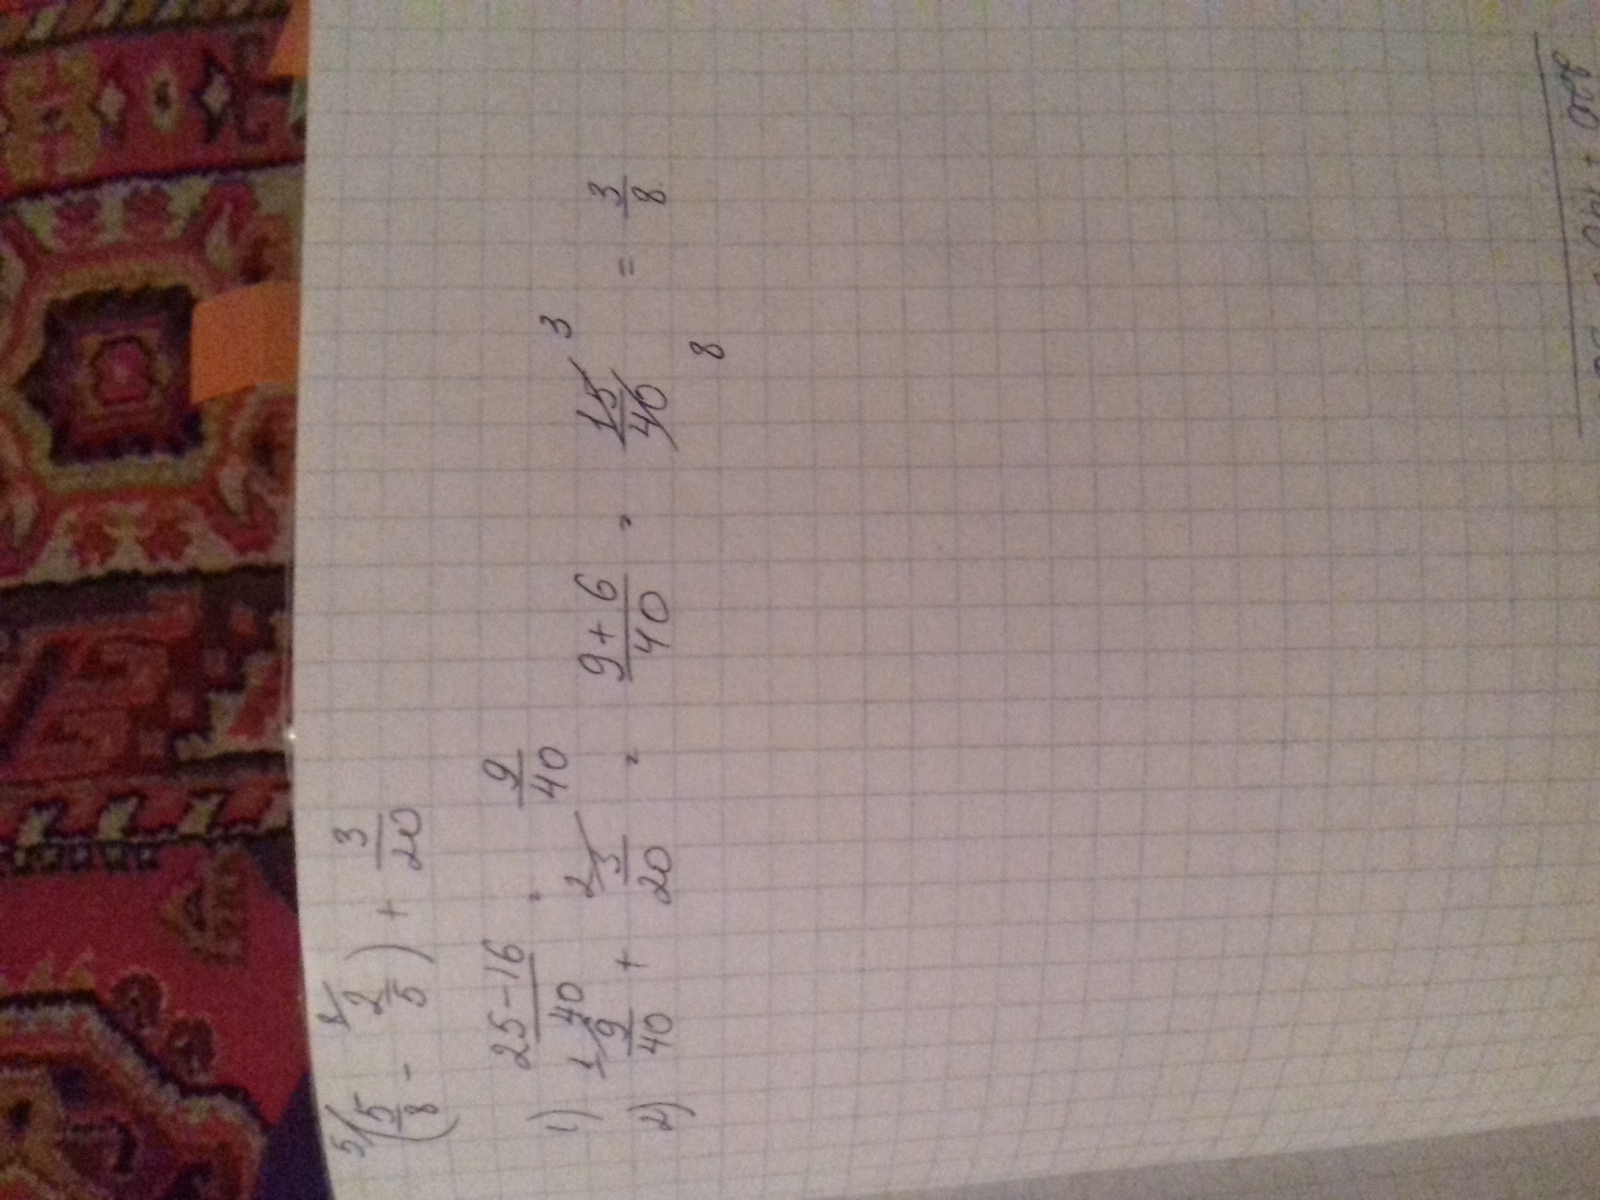 (5/8 - 2/5) + 3/20
1) 25-16/40 = 9/40
2) 9/40 + 3/20 = 9+6/40 = 15/40 = 3/8